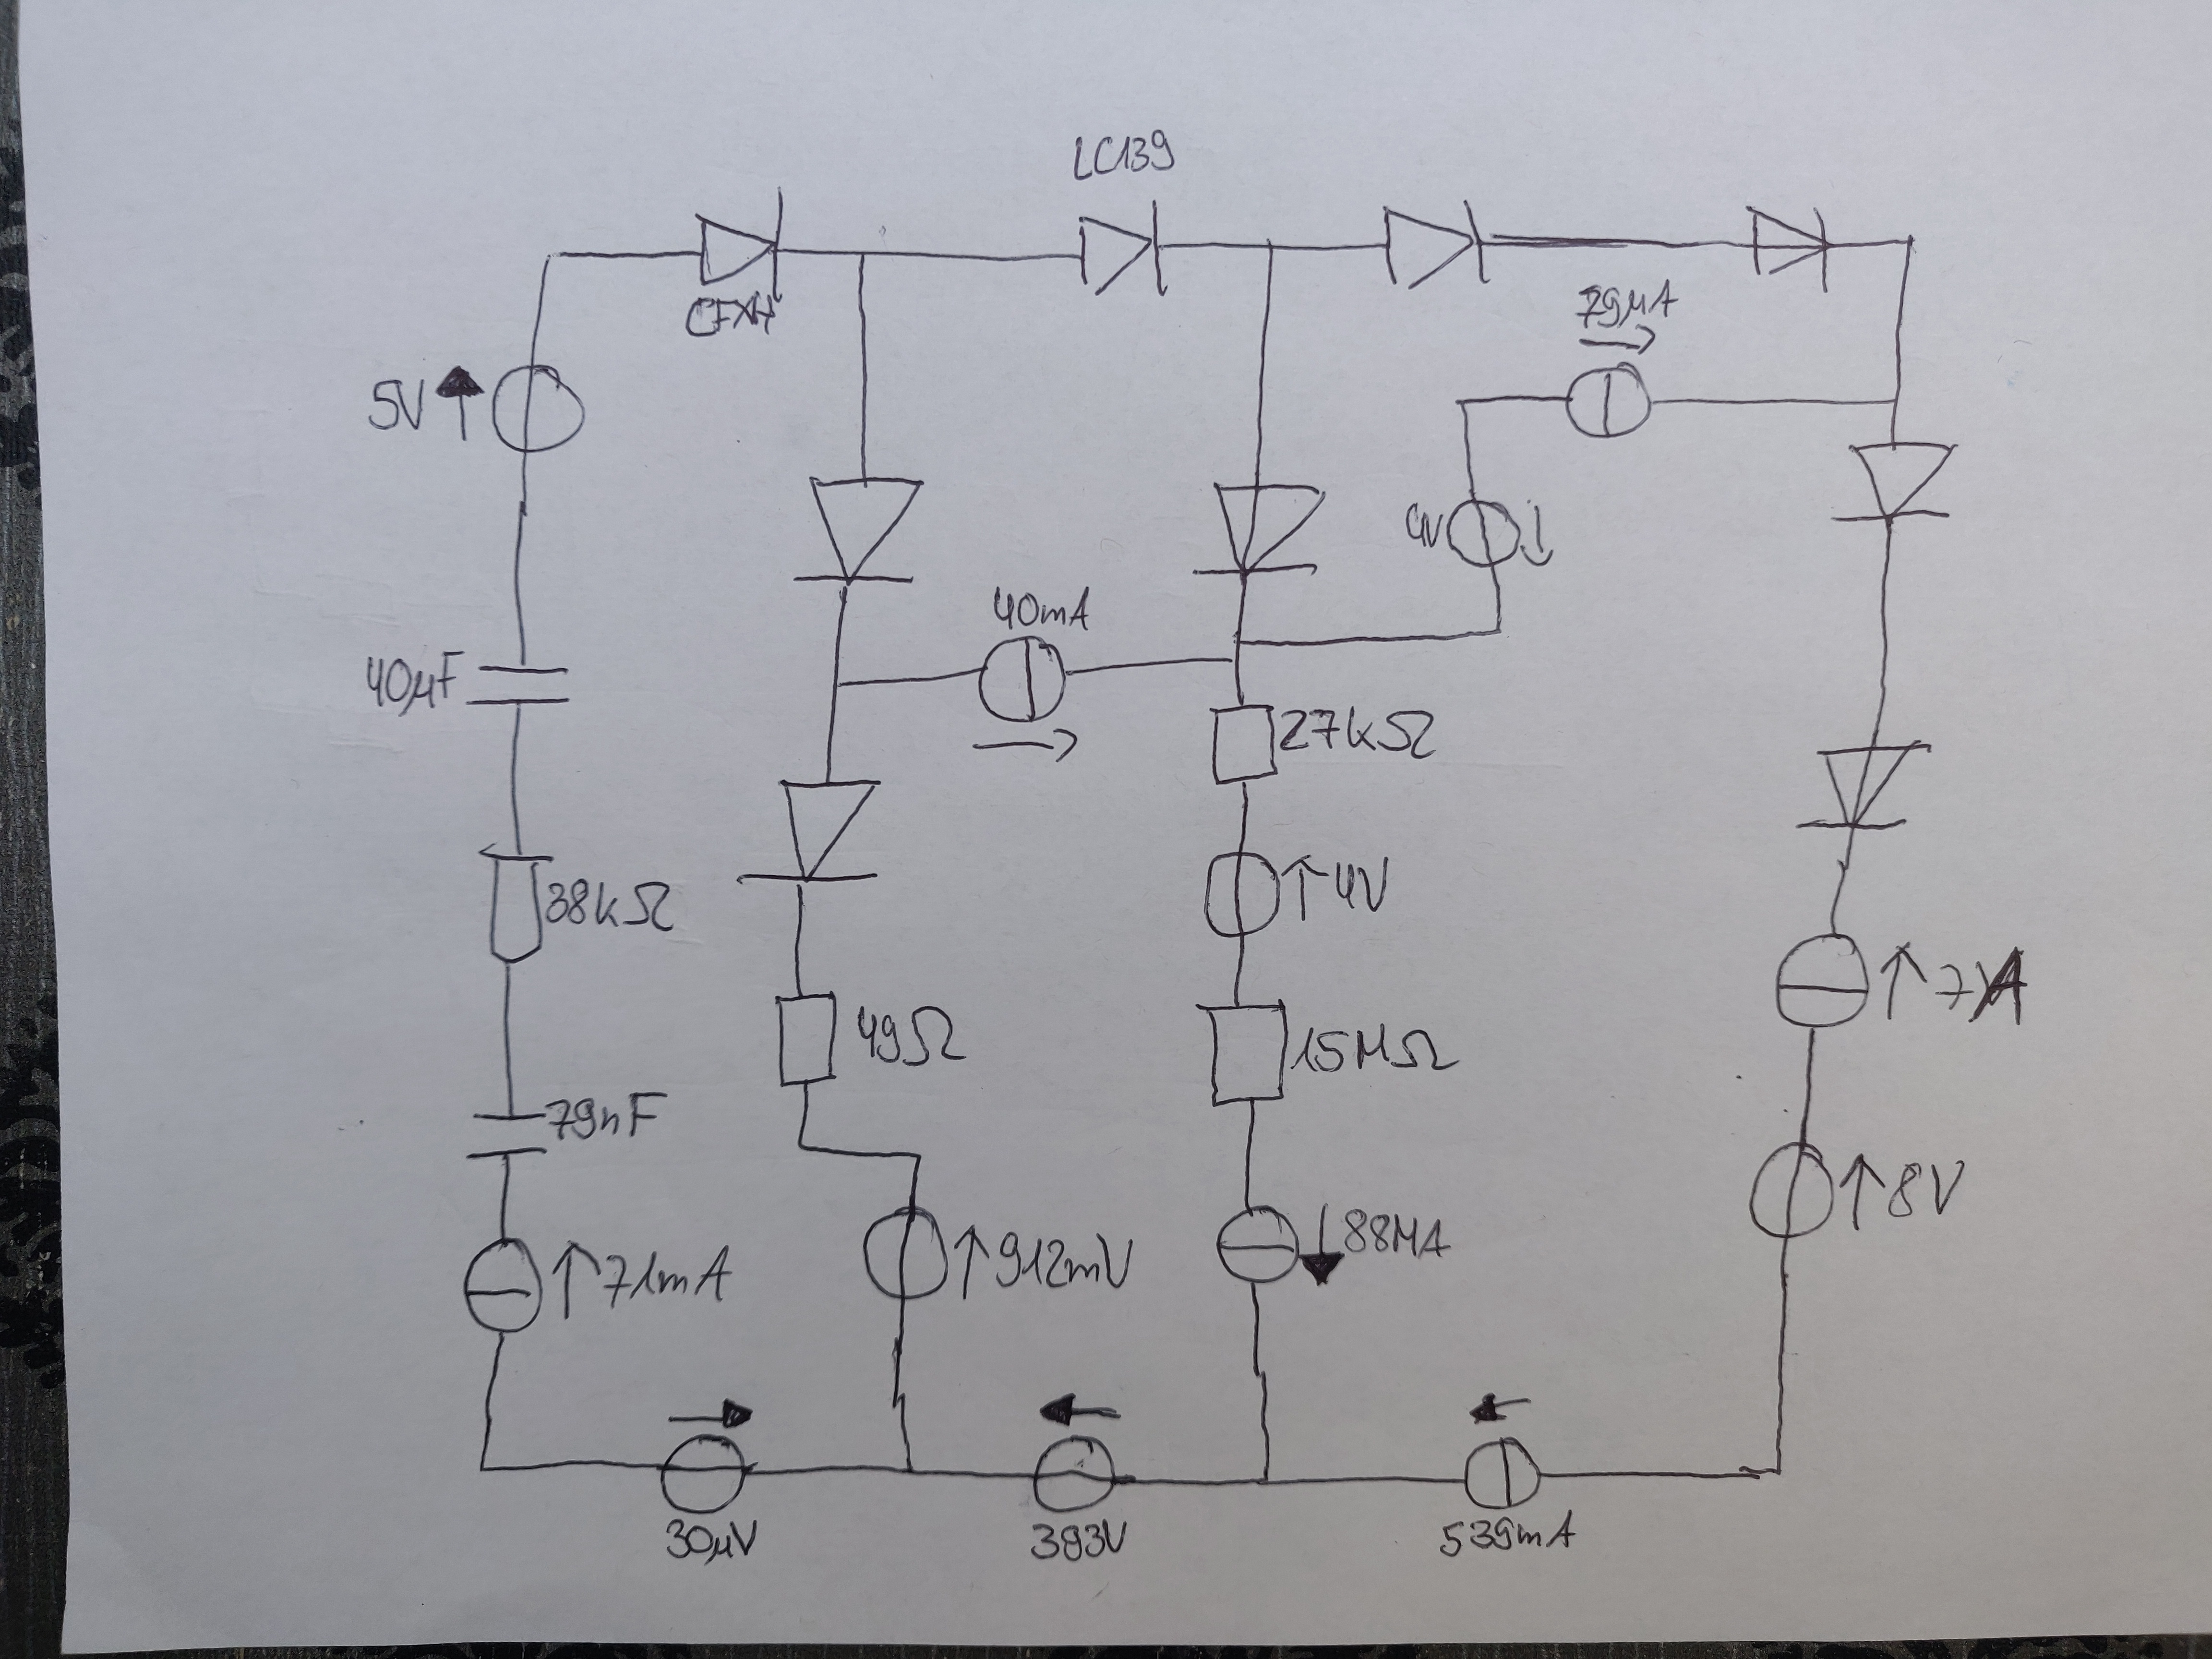 LC139
CFXH
79µA
5V
4V
40mA
40µF
27kΩ
4V
38kΩ
7A
49Ω
15MΩ
79nF
8V
88MA
912mV
71mA
30µV
393V
539mA